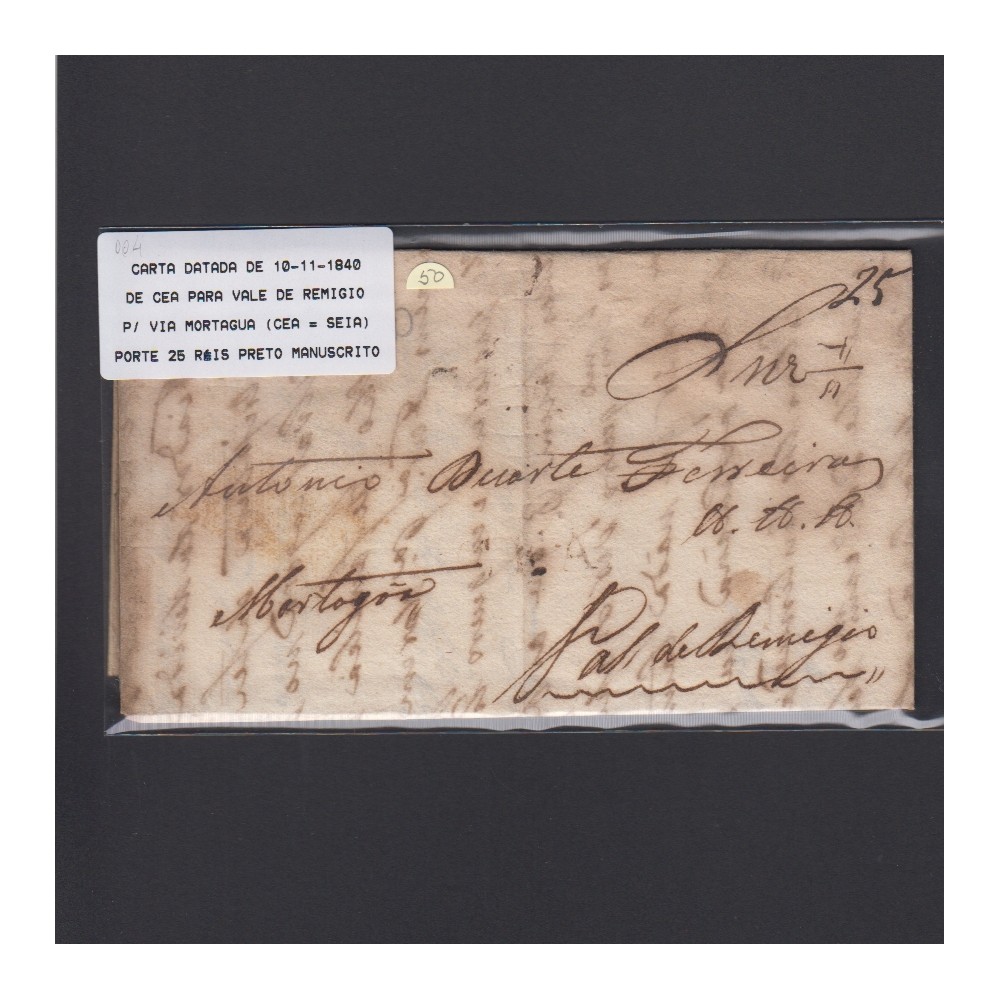 004
CARTA DATADA DE 10-11-1840
DE CEA PARA VALE DE REMIGIO
P/ VIA MORTAGUA (CEA = SEIA)
PORTE 25 RÉIS PRETO MANUSCRITO
50
25
Snr
Antonio Duarte Ferreira
Mortagôa
Val de Remigio